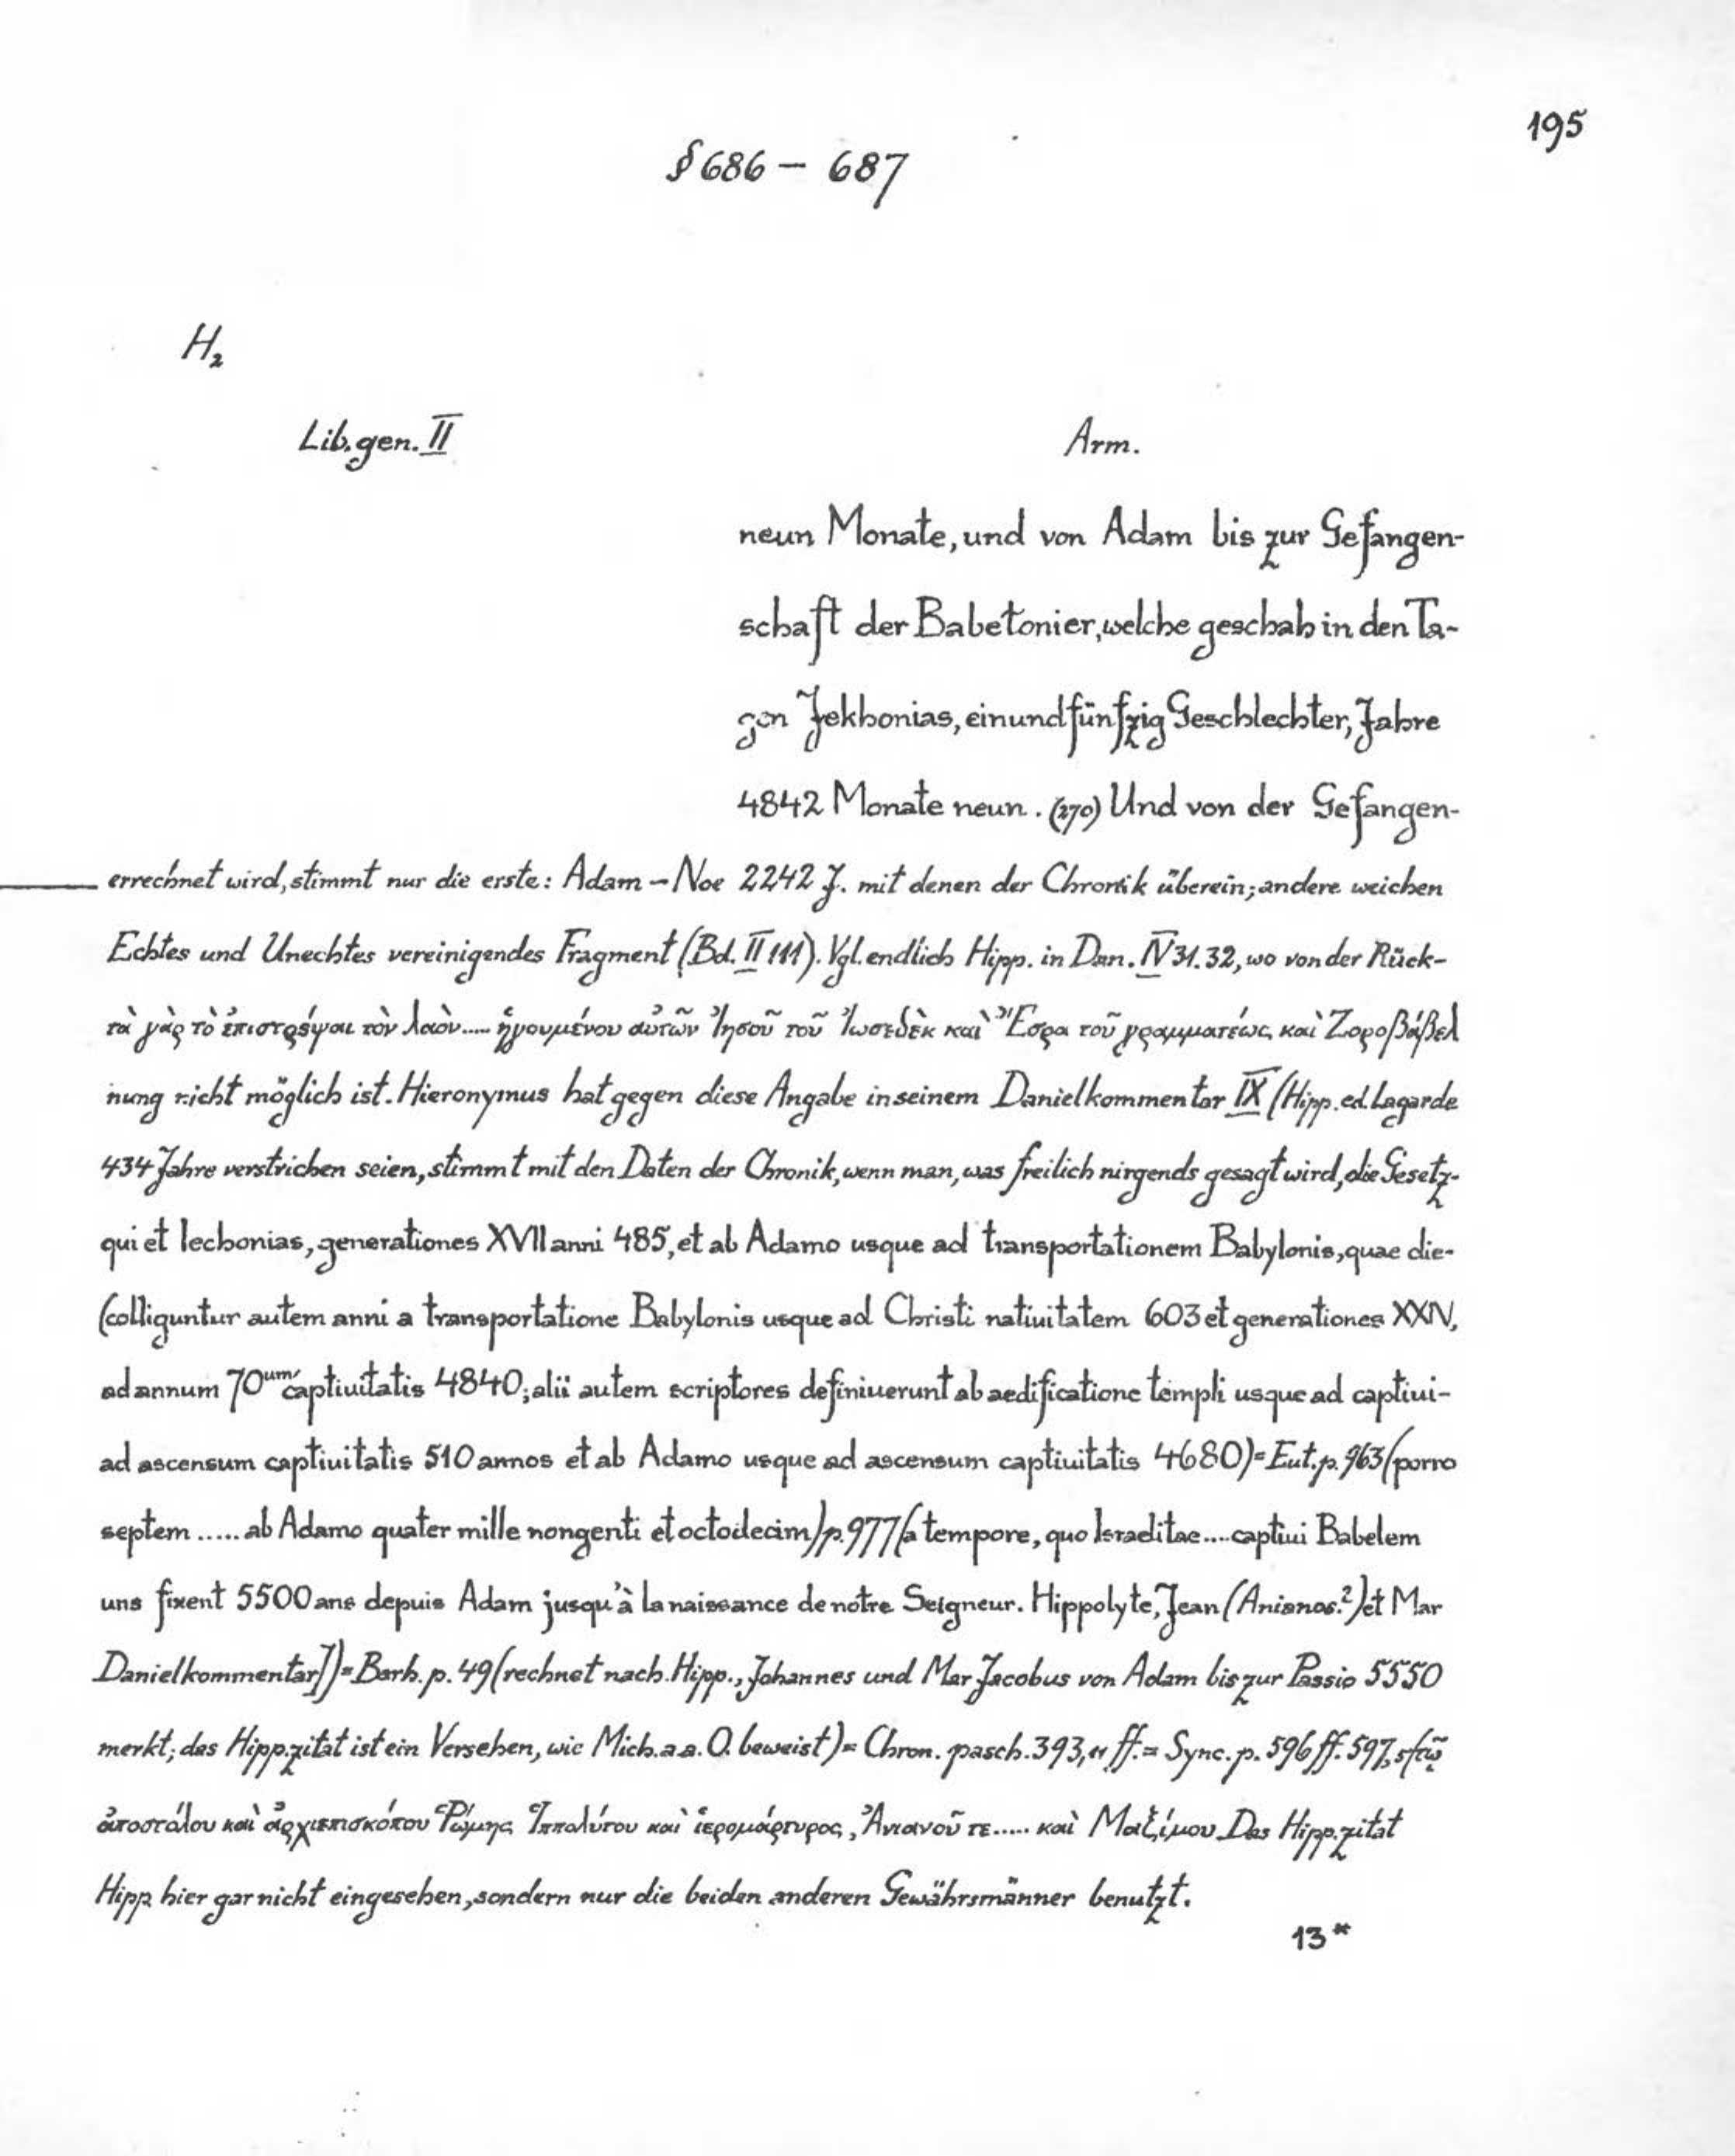 195
§ 686 – 687
H₂
Lib. gen. II
Arm.
neun Monate, und von Adam bis zur Gefangen-
schaft der Babetonier, welche geschah in den Ta-
gen Jekhonias, einundfünfzig Geschlechter, Jahre
4842 Monate neun. (270) Und von der Gefangen-
errechnet wird, stimmt nur die erste: Adam – Noe 2242 J. mit denen der Chronik überein; andere weichen
Echtes und Unechtes vereinigendes Fragment (Bd. II 111). Vgl. endlich Hipp. in Dan. IV 31. 32, wo von der Rück-
τὰ γὰρ τὸ ἐπιστρέψαι τὸν λαὸν..... ἡγουμένου αὐτῶν Ἰησοῦ τοῦ Ἰωσεδὲκ καὶ Ἔσρα τοῦ γραμματέως καὶ Ζοροβάβελ
nung nicht möglich ist. Hieronymus hat gegen diese Angabe in seinem Danielkommentar IX (Hipp. ed. Lagarde
434 Jahre verstrichen seien, stimmt mit den Daten der Chronik, wenn man, was freilich nirgends gesagt wird, die Gesetz-
qui et Iechonias, generationes XVII anni 485, et ab Adamo usque ad transportationem Babylonis, quae die-
(colliguntur autem anni a transportatione Babylonis usque ad Christi natiuitatem 603 et generationes XXIV,
ad annum 70um captiuitatis 4840; alii autem scriptores definiuerunt ab aedificatione templi usque ad captiui-
ad ascensum captiuitatis 510 annos et ab Adamo usque ad ascensum captiuitatis 4680) = Eut. p. 963 (porro
septem ..... ab Adamo quater mille nongenti et octodecim) p. 977 (a tempore, quo Israelitae .... captiui Babelem
uns fixent 5500 ans depuis Adam jusqu'à la naissance de notre Seigneur. Hippolyte, Jean (Anianos?) et Mar
Danielkommentar]) = Barh. p. 49 (rechnet nach Hipp., Johannes und Mar Jacobus von Adam bis zur Passio 5550
merkt; das Hipp.zitat ist ein Versehen, wie Mich. a. a. O. beweist) = Chron. pasch. 393, 11 ff. = Sync. p. 596 ff. 597, 5 (τῷ
ἀποστόλου καὶ ἀρχιεπισκόπου Ῥώμης Ἱππολύτου καὶ ἱερομάρτυρος, Ἀνιανοῦ τε ..... καὶ Μαξίμου. Das Hipp.zitat
Hipp. hier gar nicht eingesehen, sondern nur die beiden anderen Gewährsmänner benutzt.
13*